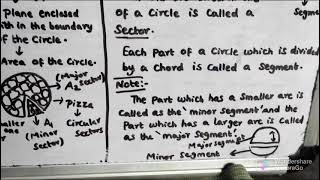 Plane enclosed
ith in the boundary
of the Circle.
Area of the Circle.
(Major
Sector)
A2
Pizza
maller
A1
(Minor
Sector)
Circular
Sectors
of a Circle is Called a
Sector.
Each Part of a Circle which is divided
by a Chord is Called a Segment.
Note:-
The Part which has a Smaller arc is
Called as the 'minor segment' and the
Part which has a larger arc is Called
as the 'major segment'.
Major segment
Minor Segment
Segme